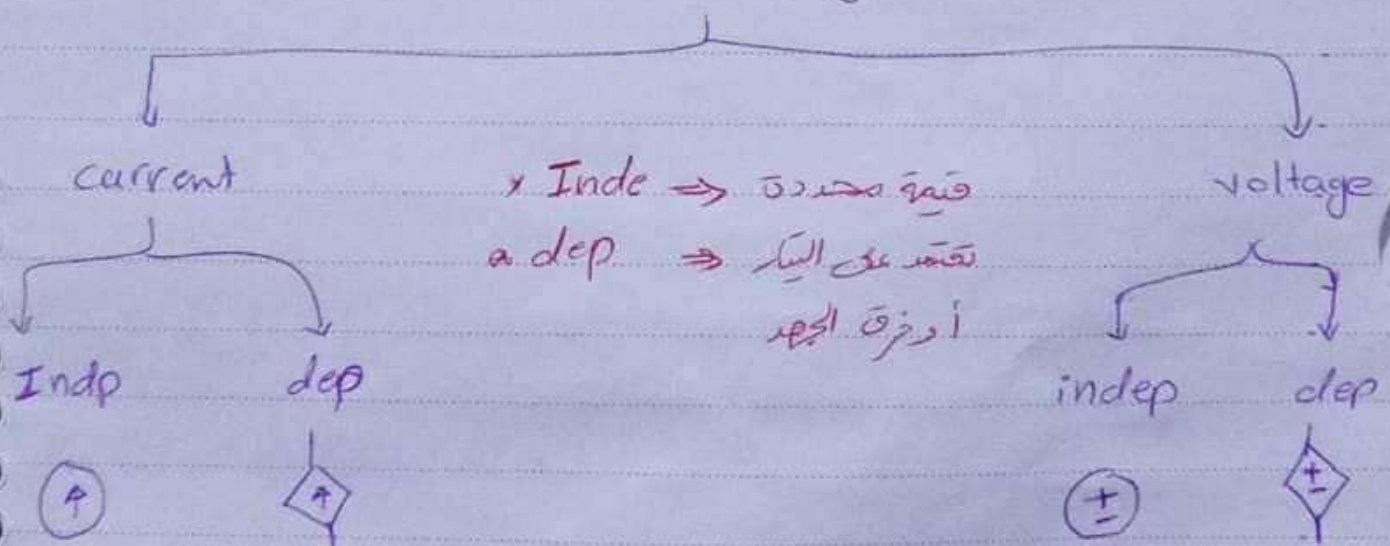 current
voltage
x Inde ⇒ قيمة محددة
a dep ⇒ تعتمد على التيار
أو فرق الجهد
Indp dep
indep dep
+
-
+
-